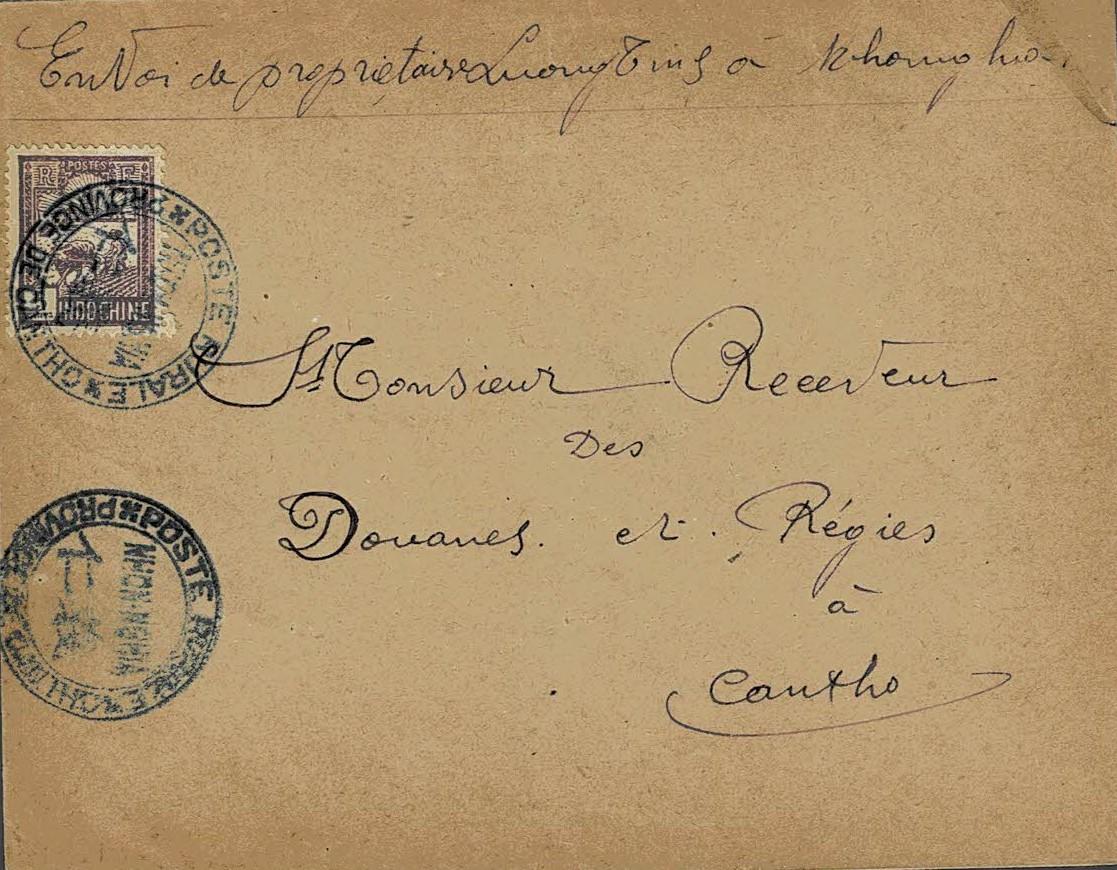 Envoi de propriétaire Luong Tinh à Nhơn nghĩa
POSTES
R F
INDOCHINE
POSTE RURALE * PROVINCE DE CANTHO *
NHON-NGHIA
Monsieur Receveur
Des
Douanes. et. Régies
à
Cantho
POSTE RURALE * PROVINCE DE CANTHO
NHON-NGHIA